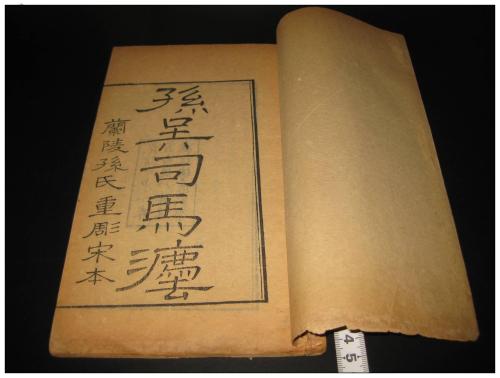 孫吳司馬灋
蘭陵孫氏重彫宋本
4 5